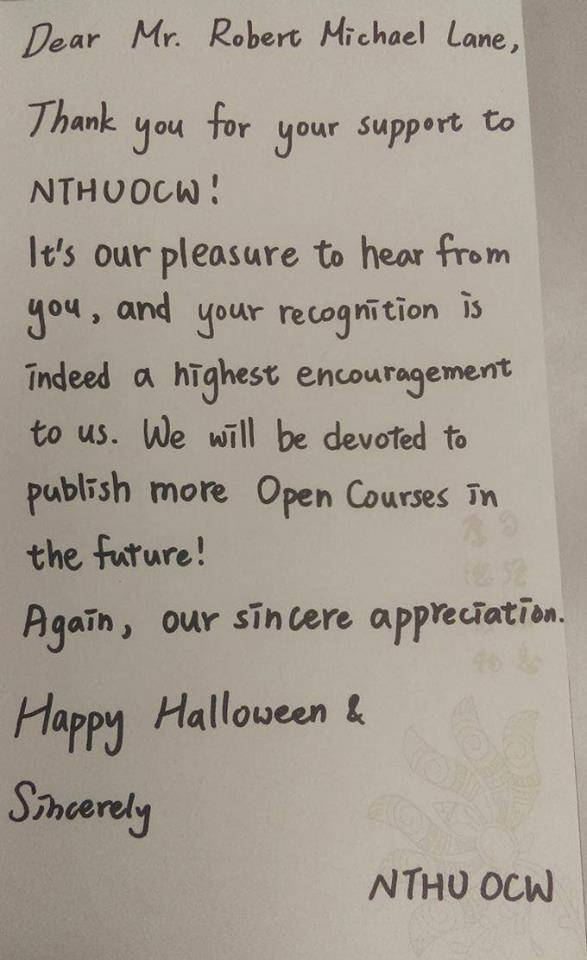 Dear Mr. Robert Michael Lane,
Thank you for your support to
NTHUOCW!
It's our pleasure to hear from
you, and your recognition is
indeed a highest encouragement
to us. We will be devoted to
publish more Open Courses in
the future!
Again, our sincere appreciation.
Happy Halloween &
Sincerely
NTHU OCW